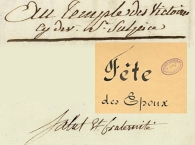 Au Temple des Victoires
cy dev. St Sulpice
Fête
des Epoux
Salut et fraternité